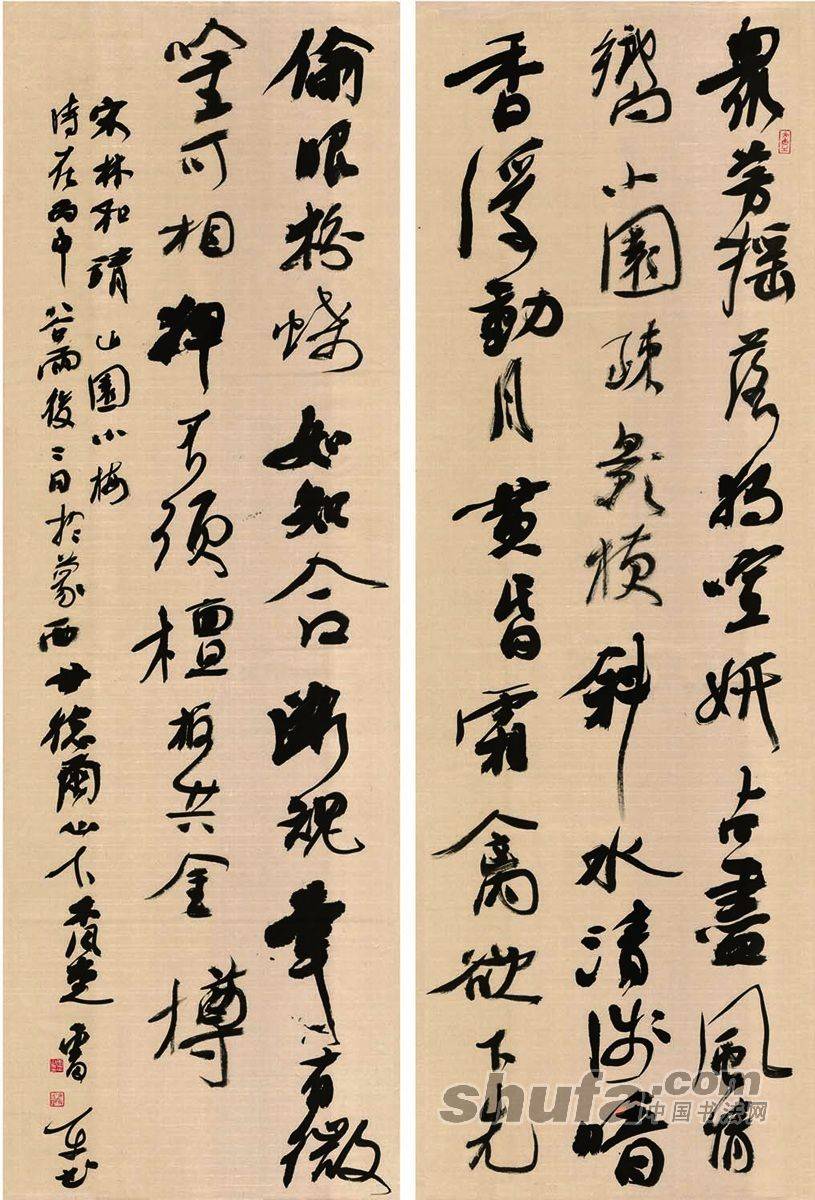 众芳摇落独暄妍占尽风情
向小园疏影横斜水清浅暗
香浮动月黄昏霜禽欲下先
偷眼粉蝶如知合断魂幸有微
吟可相狎不须檀板共金樽
宋林和靖山园小梅
诗岁丙申谷雨后二日于蒙西廿德尔山下
shufa.com
中国书法网